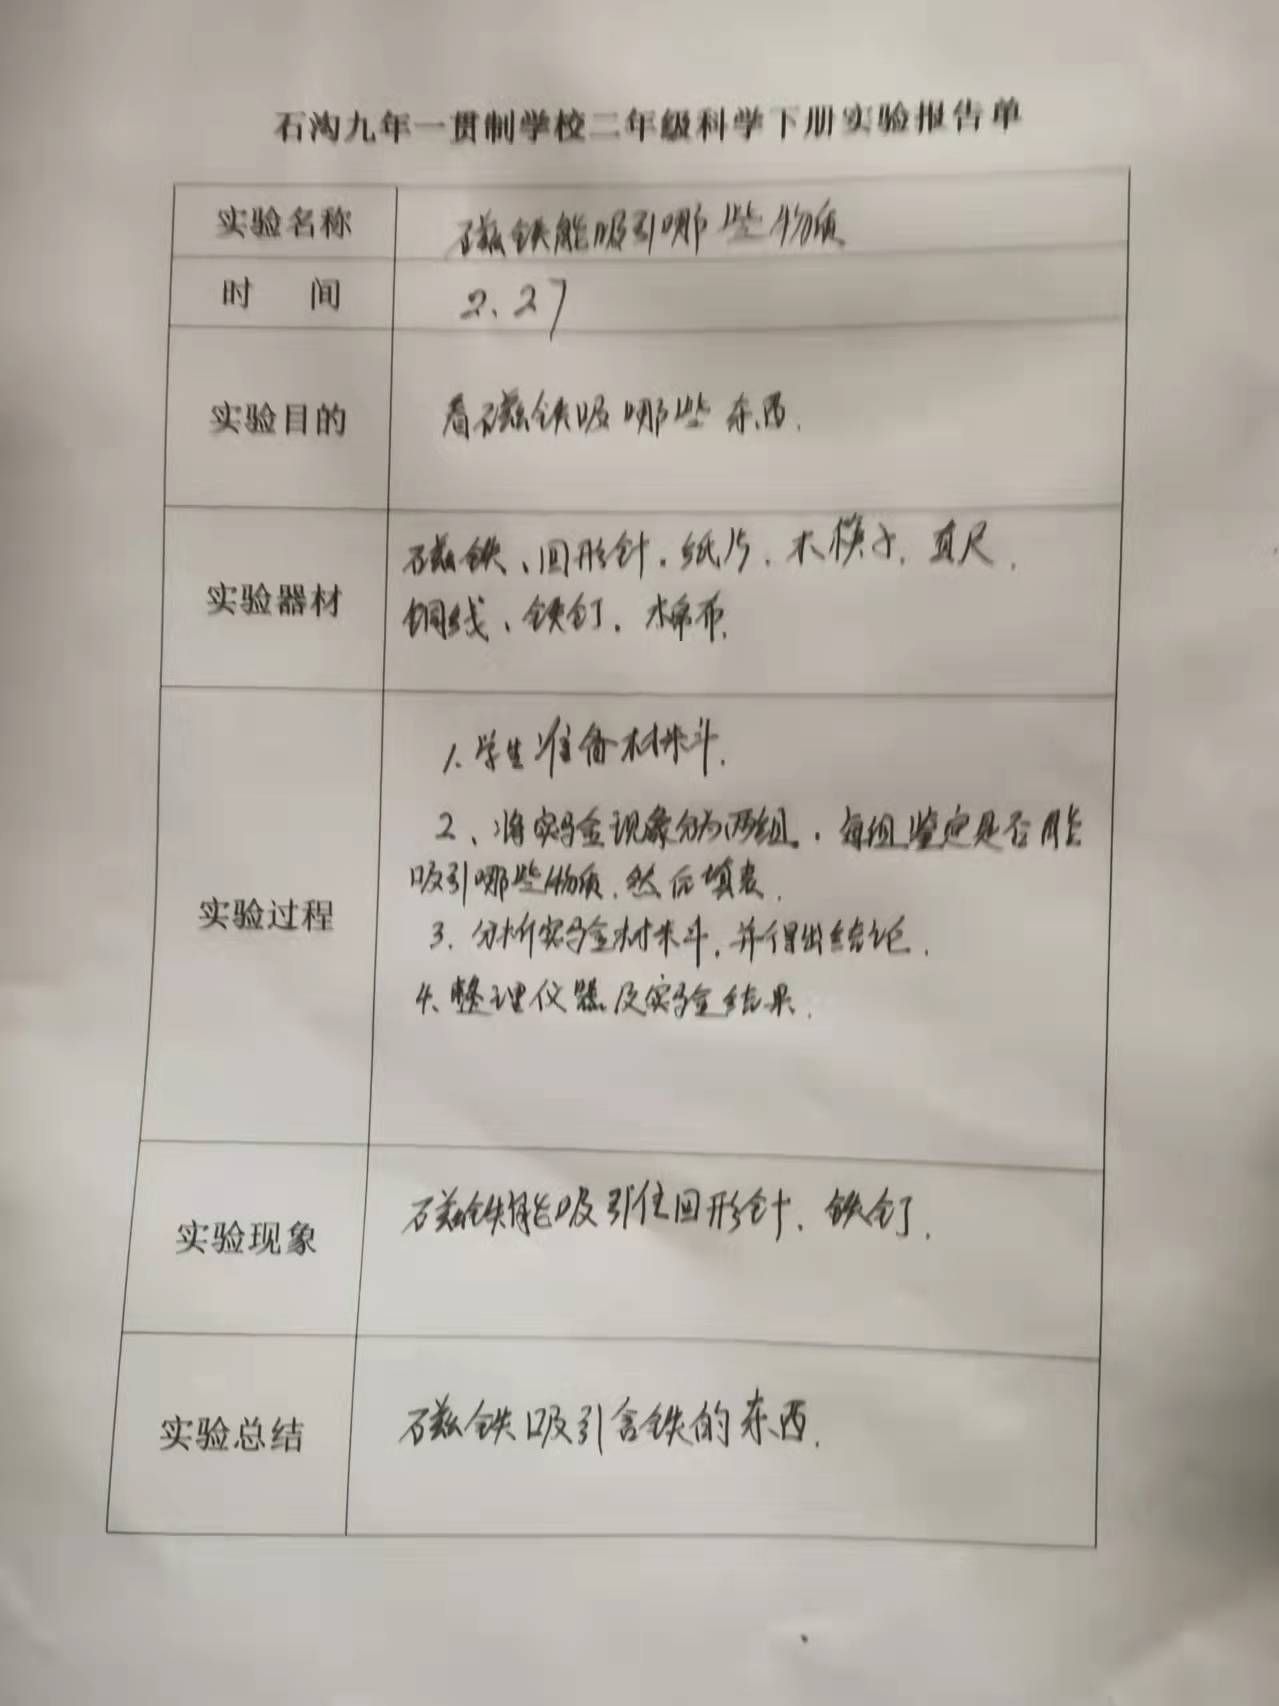 石沟九年一贯制学校二年级科学下册实验报告单
实验名称 磁铁能吸引哪些物质
时 间 2.27
实验目的 看磁铁吸哪些东西.
磁铁、回形针.纸片.木筷子.直尺.
实验器材
铜线、铁钉.棉布.
1.学生准备材料.
2、将实验现象分为两组。.每组鉴定是否能
吸引哪些物质.然后填表.
实验过程
3.分析实验材料.并得出结论.
4.整理仪器及实验结果.
实验现象 磁铁能吸引住回形针.铁钉.
实验总结 磁铁吸引含铁的东西.